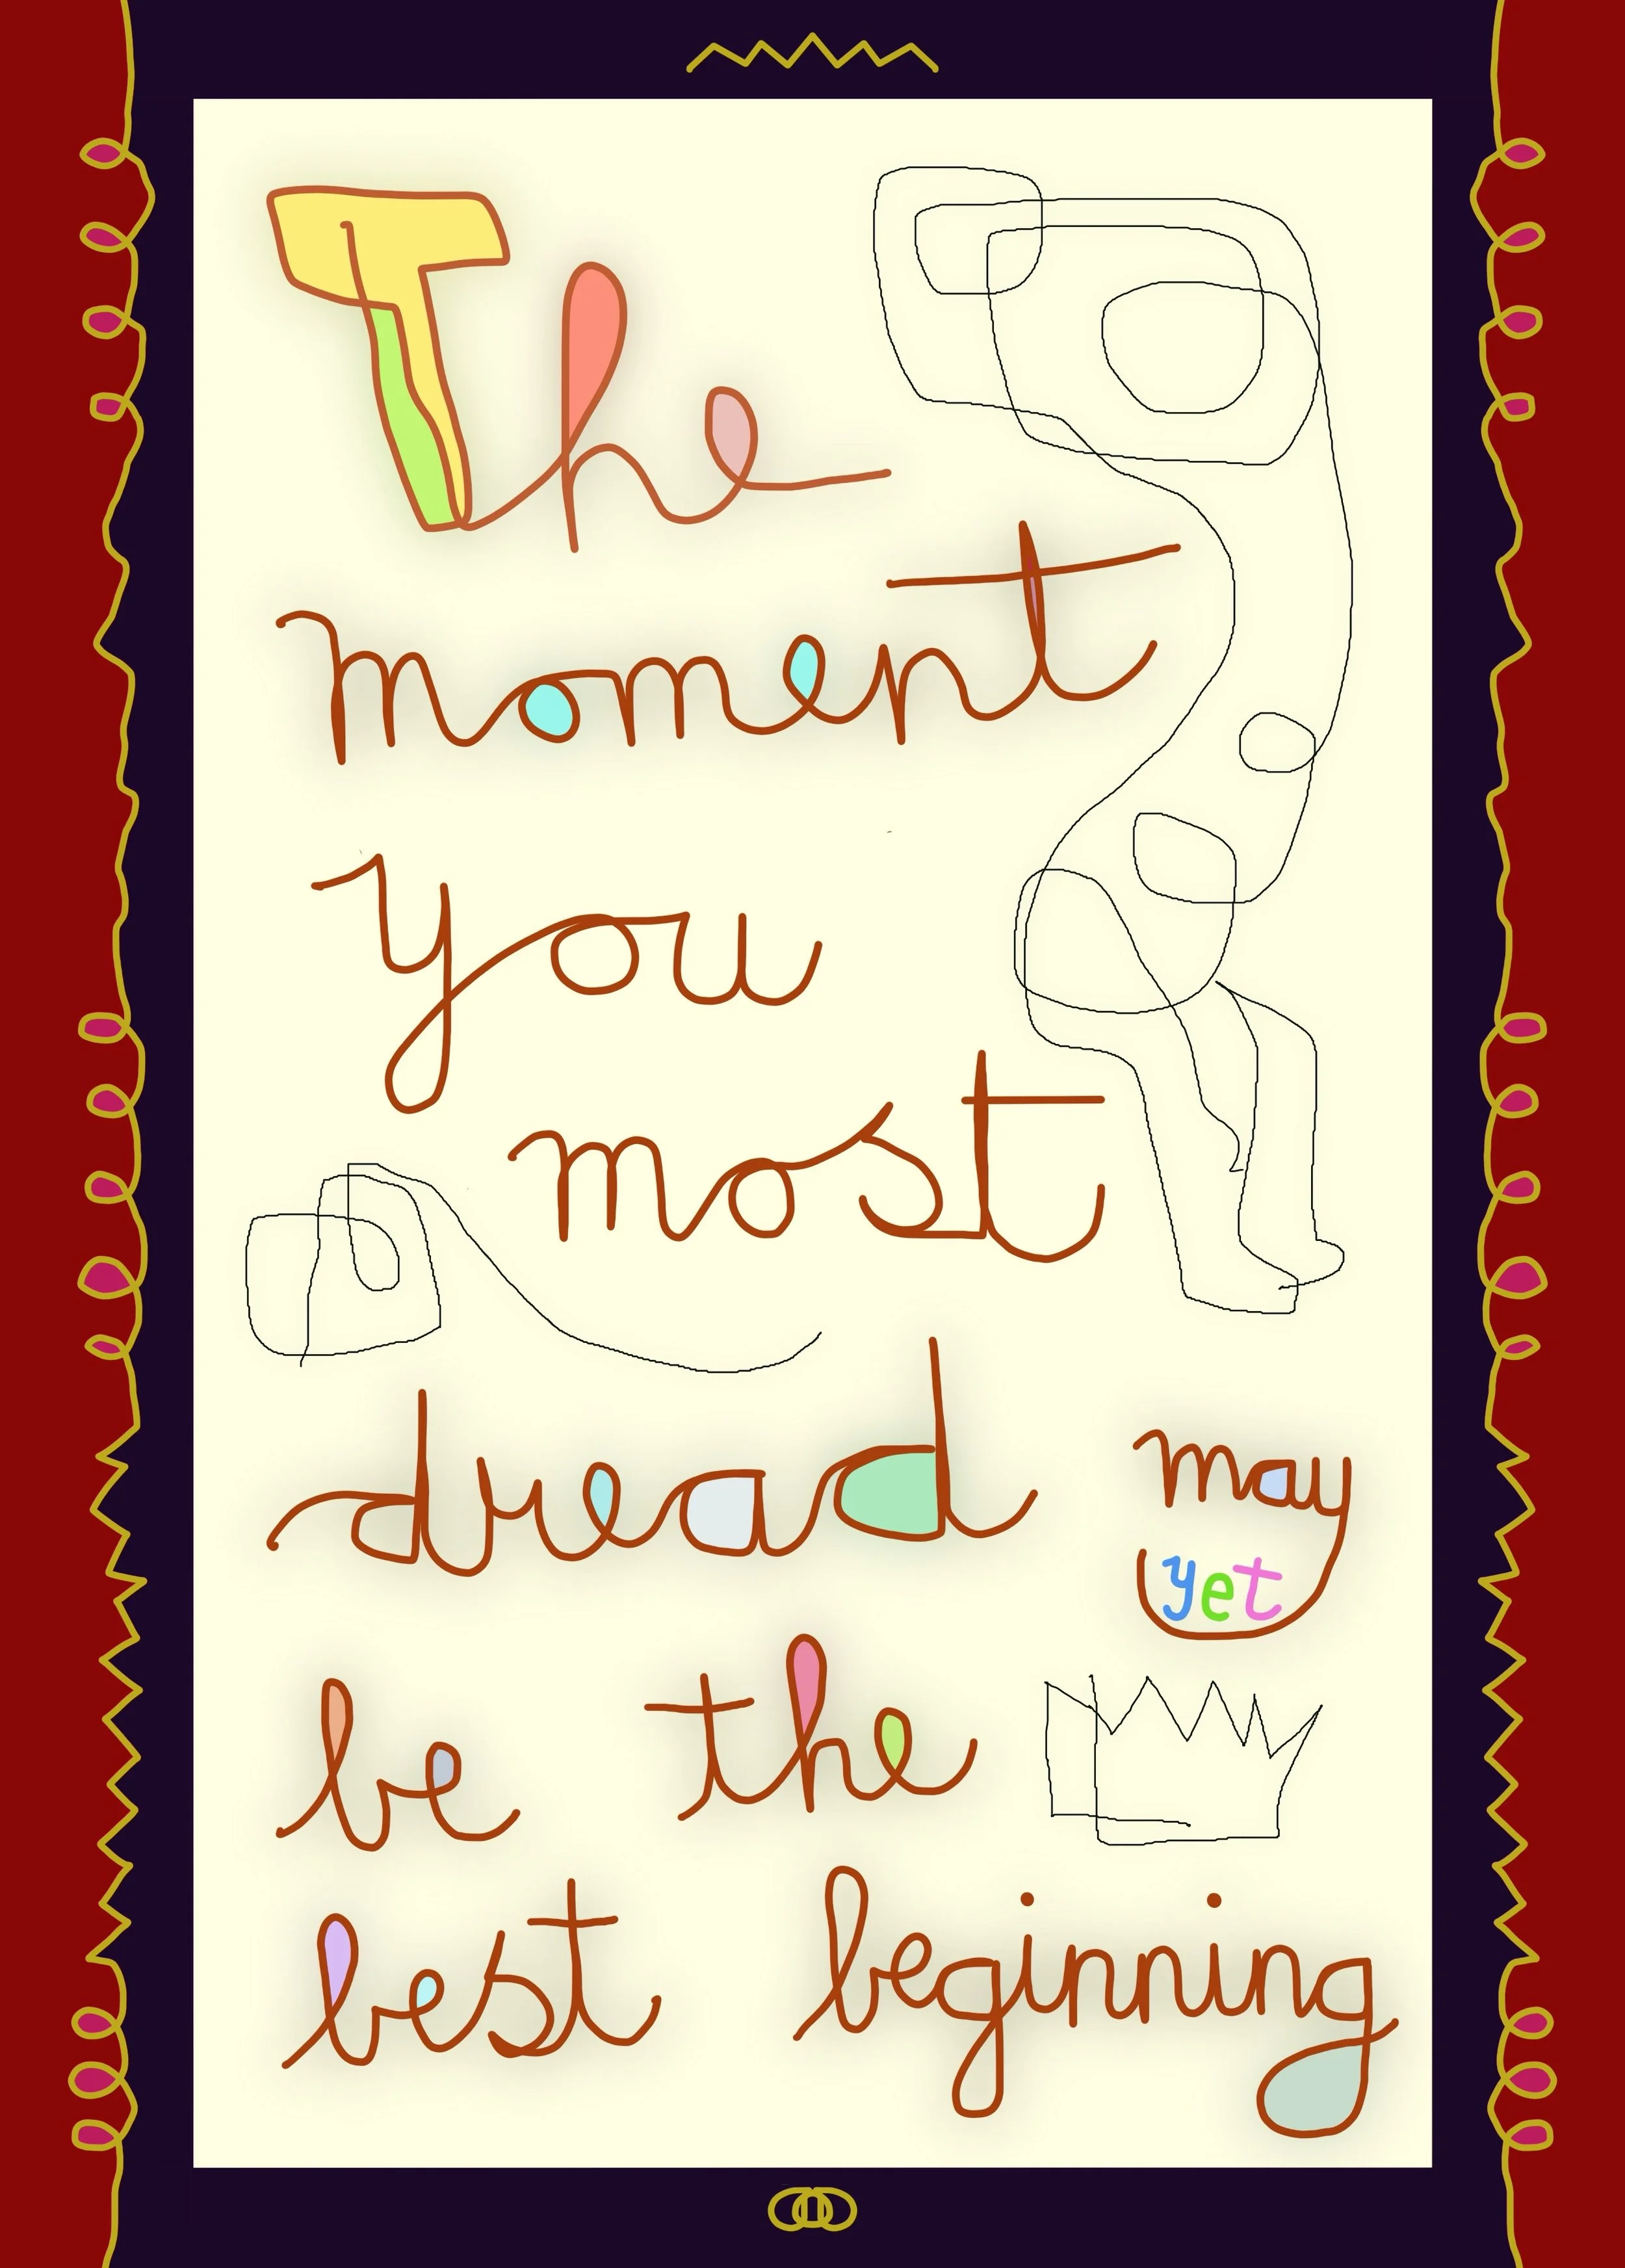 The
moment
you
most
dread may
yet
be the
best beginning